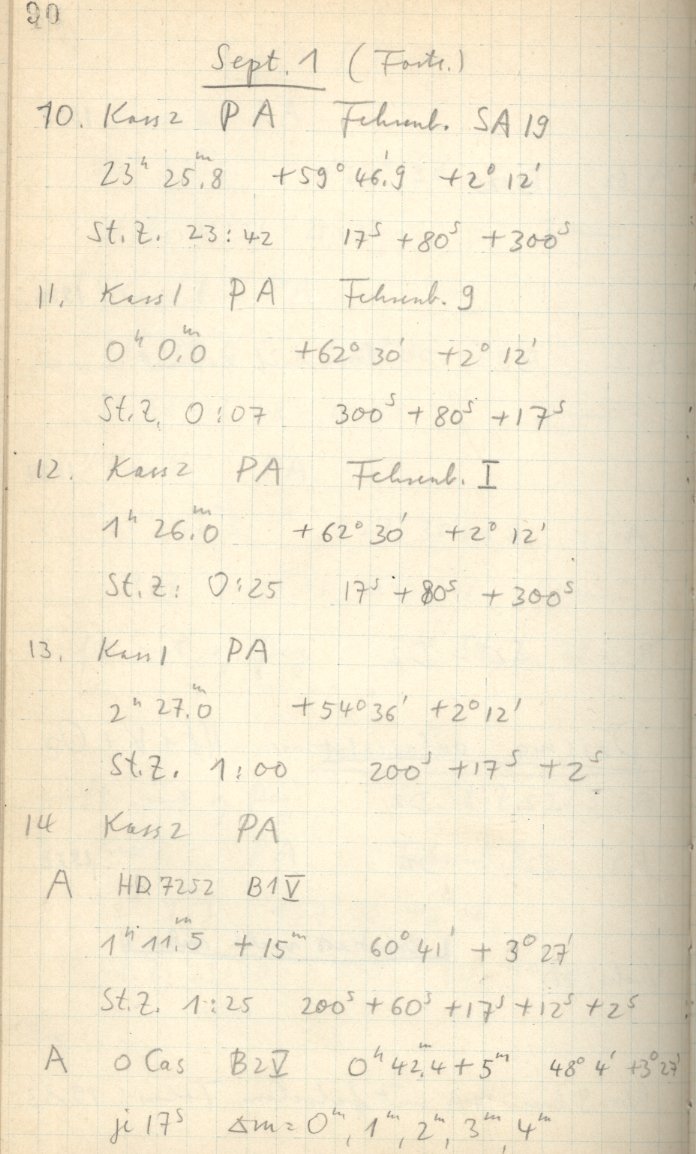 90
Sept. 1 (Forts.)
10. Kass 2 PA Fehrenb. SA 19
23ʰ 25ᵐ.8 +59° 46'.9 +2° 12'
St.Z. 23:42 17ˢ +80ˢ +300ˢ
11. Kass 1 PA Fehrenb. 9
0ʰ 0ᵐ.0 +62° 30' +2° 12'
St.Z. 0:07 300ˢ +80ˢ +17ˢ
12. Kass 2 PA Fehrenb. I
1ʰ 26ᵐ.0 +62° 30' +2° 12'
St.Z: 0:25 17ˢ +80ˢ +300ˢ
13. Kass 1 PA
2ʰ 27ᵐ.0 +54° 36' +2° 12'
St.Z. 1:00 200ˢ +17ˢ +2ˢ
14 Kass 2 PA
A HD 7252 B1V
1ʰ 11ᵐ.5 +15ᵐ 60° 41' +3° 27'
St.Z. 1:25 200ˢ +60ˢ +17ˢ +12ˢ +2ˢ
A o Cas B2V 0ʰ 42ᵐ.4 +5ᵐ 48° 4' +3° 27'
je 17ˢ Δm = 0ᵐ, 1ᵐ, 2ᵐ, 3ᵐ, 4ᵐ